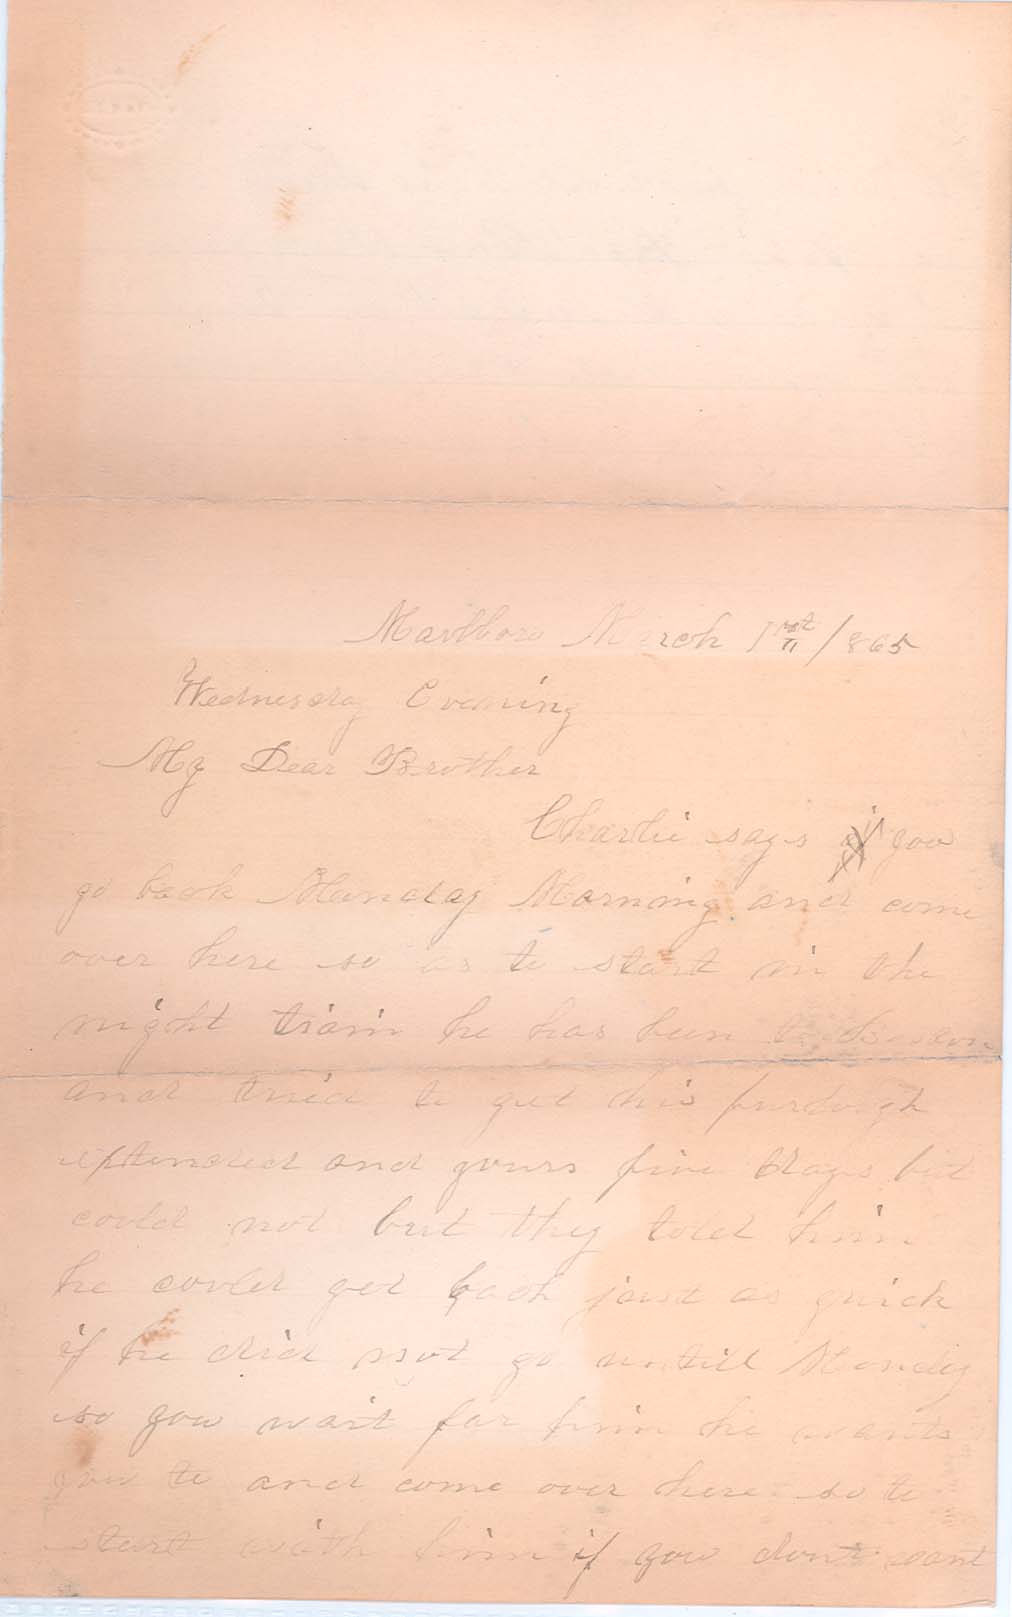 Marlboro March 1st /865
Wednesday Evening
My Dear Brother
Charlie says if you
go back Munday Morning and come
over here so as to start in the
night train he has been to Boston
and tried to get his furlough
extended and yours five days but
could not but they told him
he could get back just as quick
if he did not go untill Mondy
so you wait for him he wants
you to and come over here so to
start with him if you dont want